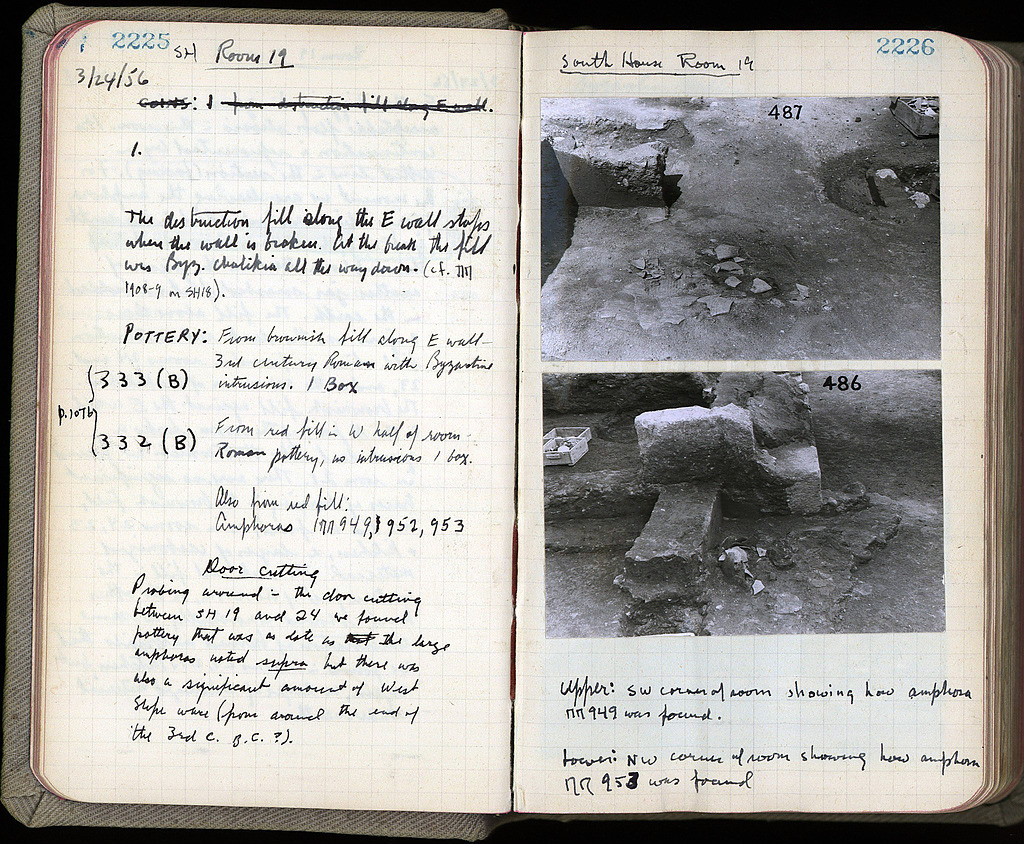 2225
SH Room 19
3/24/56
COINS: 1 from destruction fill along E wall.
1.
The destruction fill along the E wall stops
where the wall is broken. At the break the fill
was Byz. chalikia all the way down. (cf. ΠΠ
1908-9 on SH18).
POTTERY: From brownish fill along E wall-
3rd century Roman with Byzantine
intrusions. 1 Box
333 (B)
p.1076
332 (B)
From red fill in W half of room-
Roman pottery, no intrusions 1 box.
Also from red fill:
Amphoras ΠΠ 949, 952, 953
Door cutting
Probing around - the door cutting
between SH 19 and 24 we found
pottery that was as late as the large
amphoras noted supra but there was
also a significant amount of West
Slope ware (from around the end of
the 3rd c. B.C.?).
2226
South House Room 19
487
486
Upper: SW corner of room showing how amphora
ΠΠ 949 was found.
Lower: NW corner of room showing how amphora
ΠΠ 953 was found